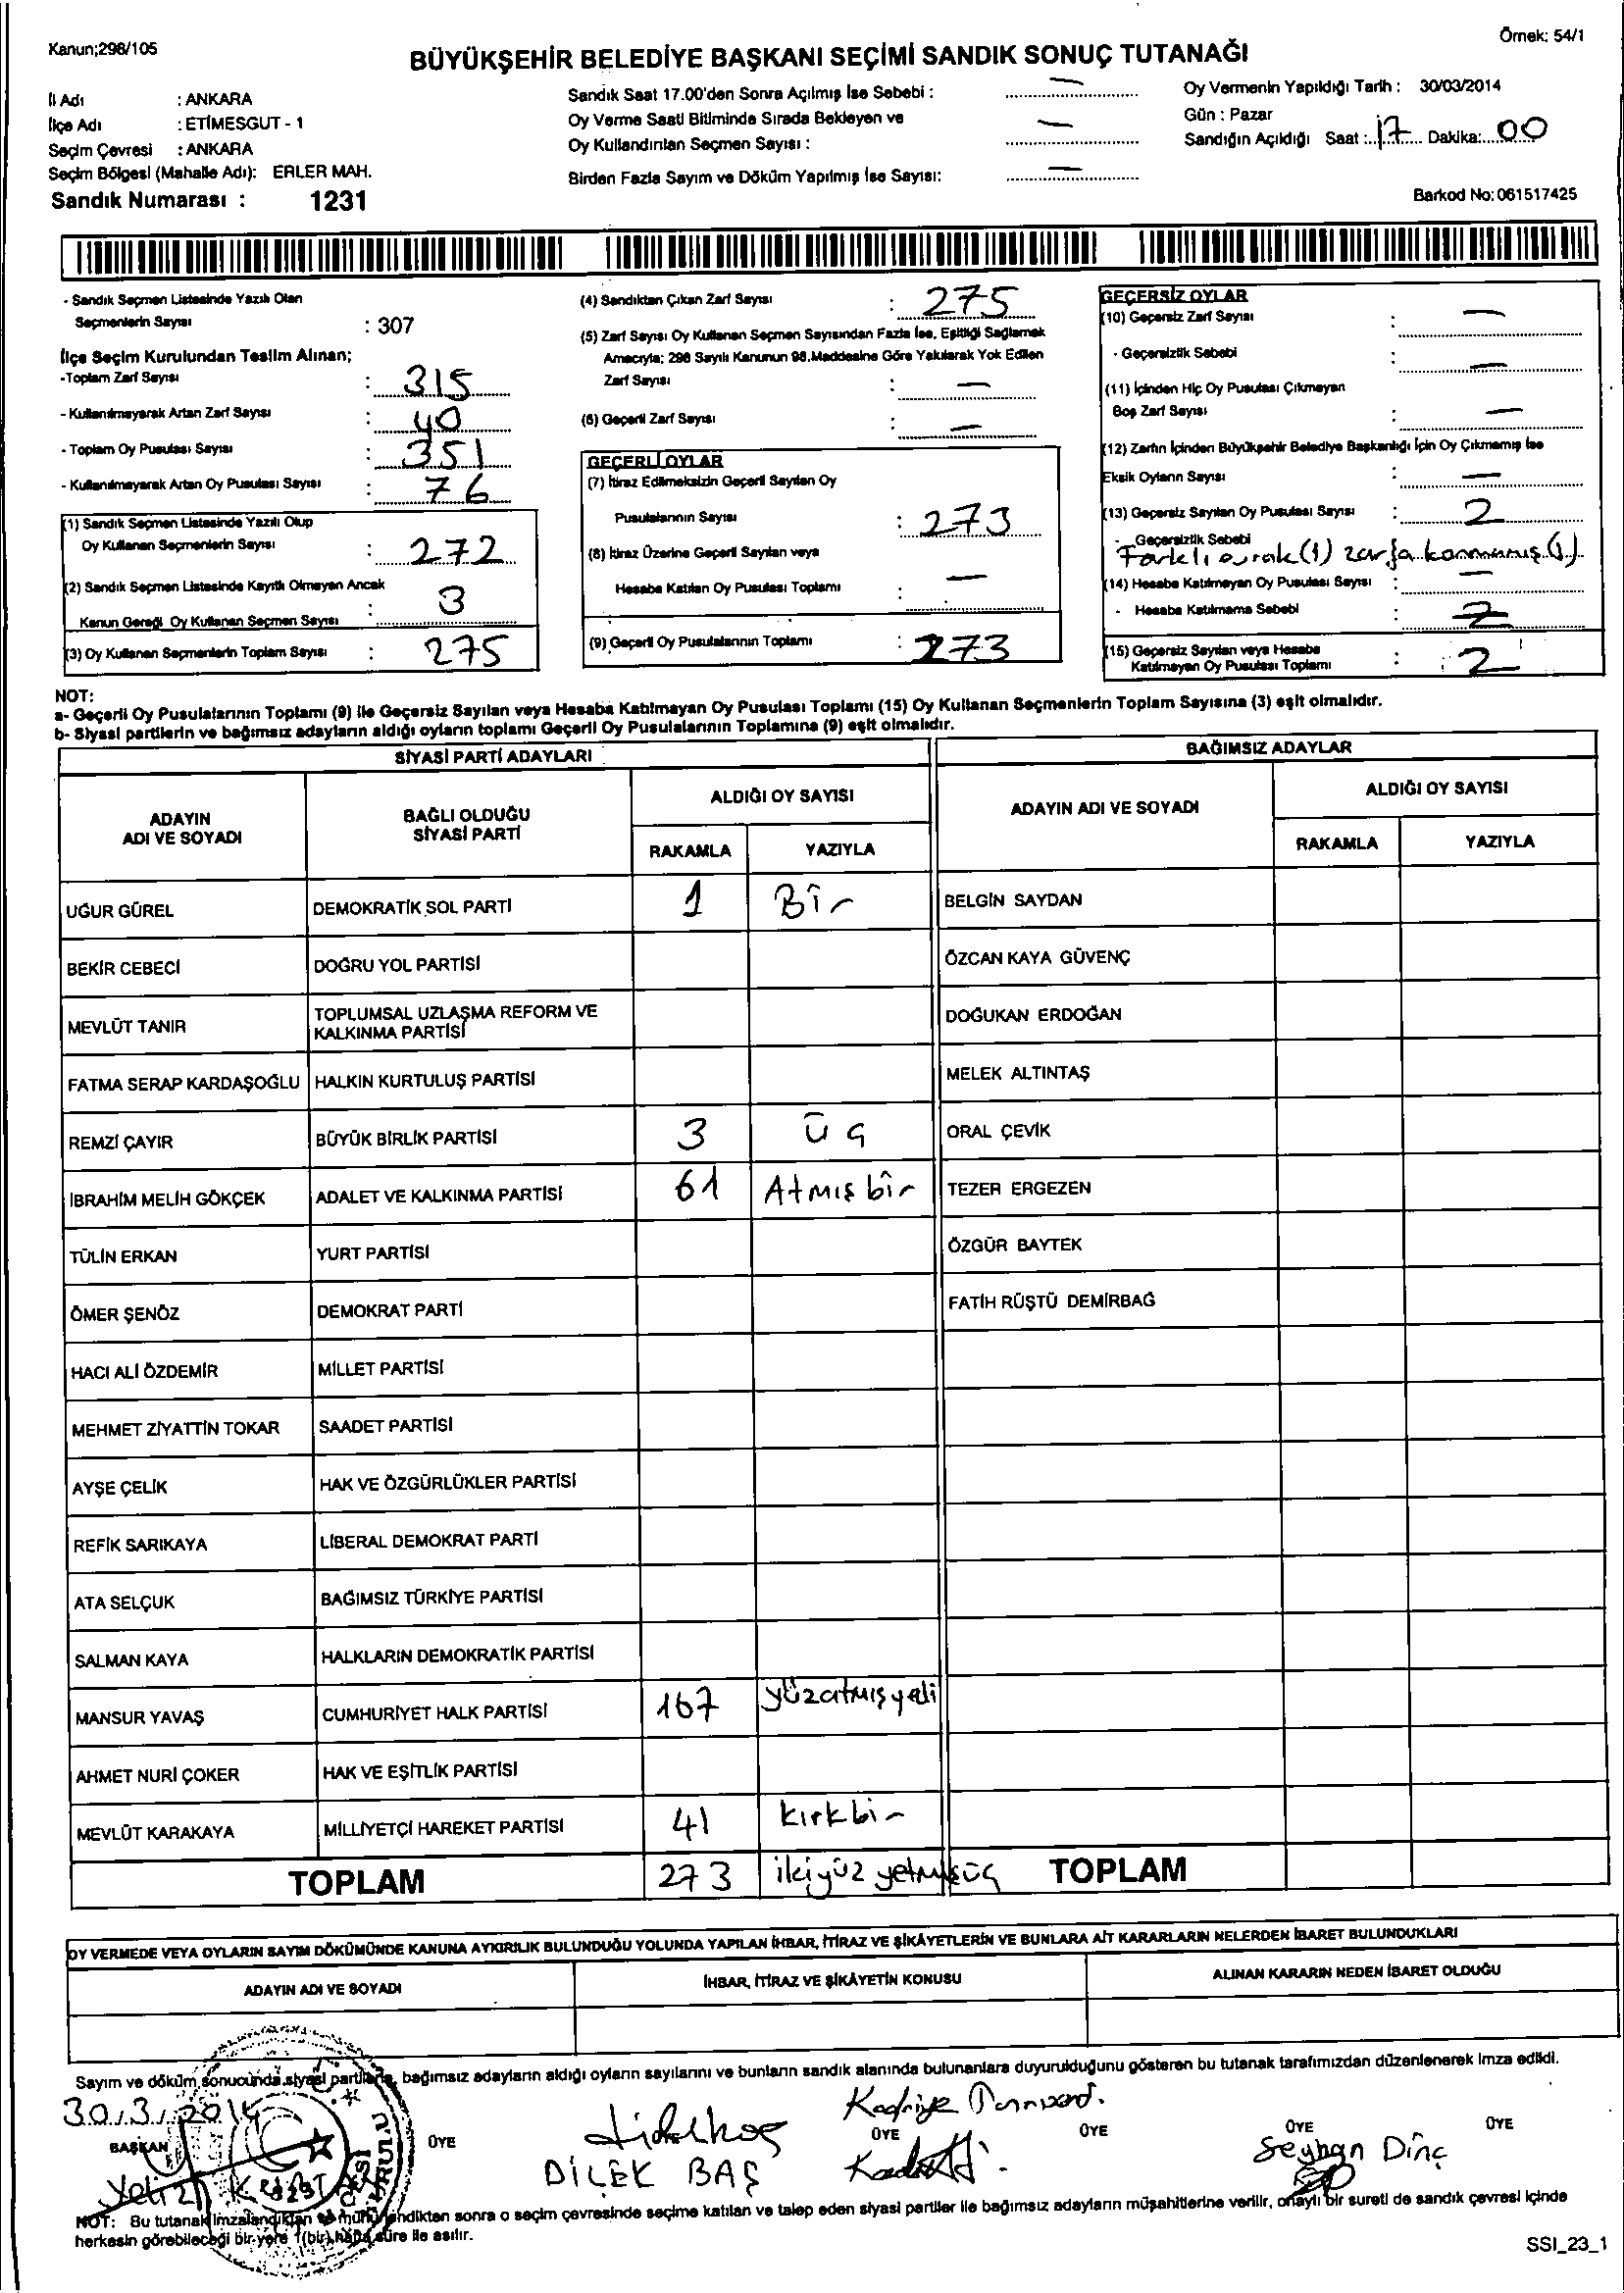 Kanun;298/105
Örnek: 54/1
BÜYÜKŞEHİR BELEDİYE BAŞKANI SEÇİMİ SANDIK SONUÇ TUTANAĞI
İl Adı : ANKARA
İlçe Adı : ETİMESGUT - 1
Seçim Çevresi : ANKARA
Seçim Bölgesi (Mahalle Adı): ERLER MAH.
Sandık Numarası : 1231
Sandık Saat 17.00'den Sonra Açılmış İse Sebebi : —
Oy Verme Saati Bitiminde Sırada Bekleyen ve
Oy Kullandırılan Seçmen Sayısı : —
Birden Fazla Sayım ve Döküm Yapılmış İse Sayısı: —
Oy Vermenin Yapıldığı Tarih : 30/03/2014
Gün : Pazar
Sandığın Açıldığı Saat : 17 Dakika: 00
Barkod No: 061517425
- Sandık Seçmen Listesinde Yazılı Olan
Seçmenlerin Sayısı : 307
İlçe Seçim Kurulundan Teslim Alınan;
-Toplam Zarf Sayısı : 315
- Kullanılmayarak Artan Zarf Sayısı : 40
- Toplam Oy Pusulası Sayısı : 351
- Kullanılmayarak Artan Oy Pusulası Sayısı : 76
(1) Sandık Seçmen Listesinde Yazılı Olup
Oy Kullanan Seçmenlerin Sayısı : 272
(2) Sandık Seçmen Listesinde Kayıtlı Olmayan Ancak
Kanun Gereği Oy Kullanan Seçmen Sayısı : 3
(3) Oy Kullanan Seçmenlerin Toplam Sayısı : 275
(4) Sandıktan Çıkan Zarf Sayısı : 275
(5) Zarf Sayısı Oy Kullanan Seçmen Sayısından Fazla İse, Eşitliği Sağlamak
Amacıyla; 298 Sayılı Kanunun 98.Maddesine Göre Yakılarak Yok Edilen
Zarf Sayısı : —
(6) Geçerli Zarf Sayısı : —
GEÇERLİ OYLAR
(7) İtiraz Edilmeksizin Geçerli Sayılan Oy
Pusulalarının Sayısı : 273
(8) İtiraz Üzerine Geçerli Sayılan veya
Hesaba Katılan Oy Pusulası Toplamı : —
(9) Geçerli Oy Pusulalarının Toplamı : 273
GEÇERSİZ OYLAR
(10) Geçersiz Zarf Sayısı : —
- Geçersizlik Sebebi : —
(11) İçinden Hiç Oy Pusulası Çıkmayan
Boş Zarf Sayısı : —
(12) Zarfın İçinden Büyükşehir Belediye Başkanlığı İçin Oy Çıkmamış İse
Eksik Oyların Sayısı : —
(13) Geçersiz Sayılan Oy Pusulası Sayısı : 2
- Geçersizlik Sebebi
Farklı evrak (1) zarfa konmamış (1)
(14) Hesaba Katılmayan Oy Pusulası Sayısı : —
- Hesaba Katılmama Sebebi : 2
(15) Geçersiz Sayılan veya Hesaba
Katılmayan Oy Pusulası Toplamı : 2
NOT:
a- Geçerli Oy Pusulalarının Toplamı (9) ile Geçersiz Sayılan veya Hesaba Katılmayan Oy Pusulası Toplamı (15) Oy Kullanan Seçmenlerin Toplam Sayısına (3) eşit olmalıdır.
b- Siyasi partilerin ve bağımsız adayların aldığı oyların toplamı Geçerli Oy Pusulalarının Toplamına (9) eşit olmalıdır.
SİYASİ PARTİ ADAYLARI
BAĞIMSIZ ADAYLAR
ADAYIN
ADI VE SOYADI
BAĞLI OLDUĞU
SİYASİ PARTİ
ALDIĞI OY SAYISI
RAKAMLA YAZIYLA
ADAYIN ADI VE SOYADI
ALDIĞI OY SAYISI
RAKAMLA YAZIYLA
UĞUR GÜREL DEMOKRATİK SOL PARTİ 1 Bir BELGİN SAYDAN
BEKİR CEBECİ DOĞRU YOL PARTİSİ ÖZCAN KAYA GÜVENÇ
MEVLÜT TANIR TOPLUMSAL UZLAŞMA REFORM VE
KALKINMA PARTİSİ DOĞUKAN ERDOĞAN
FATMA SERAP KARDAŞOĞLU HALKIN KURTULUŞ PARTİSİ MELEK ALTINTAŞ
REMZİ ÇAYIR BÜYÜK BİRLİK PARTİSİ 3 üç ORAL ÇEVİK
İBRAHİM MELİH GÖKÇEK ADALET VE KALKINMA PARTİSİ 61 Atmış bir TEZER ERGEZEN
TÜLİN ERKAN YURT PARTİSİ ÖZGÜR BAYTEK
ÖMER ŞENÖZ DEMOKRAT PARTİ FATİH RÜŞTÜ DEMİRBAĞ
HACI ALİ ÖZDEMİR MİLLET PARTİSİ
MEHMET ZİYATTİN TOKAR SAADET PARTİSİ
AYŞE ÇELİK HAK VE ÖZGÜRLÜKLER PARTİSİ
REFİK SARIKAYA LİBERAL DEMOKRAT PARTİ
ATA SELÇUK BAĞIMSIZ TÜRKİYE PARTİSİ
SALMAN KAYA HALKLARIN DEMOKRATİK PARTİSİ
MANSUR YAVAŞ CUMHURİYET HALK PARTİSİ 167 yüzatmışyedi
AHMET NURİ ÇOKER HAK VE EŞİTLİK PARTİSİ
MEVLÜT KARAKAYA MİLLİYETÇİ HAREKET PARTİSİ 41 kırkbir
TOPLAM 273 ikiyüz yetmişüç TOPLAM
OY VERMEDE VEYA OYLARIN SAYIM DÖKÜMÜNDE KANUNA AYKIRILIK BULUNDUĞU YOLUNDA YAPILAN İHBAR, İTİRAZ VE ŞİKÂYETLERİN VE BUNLARA AİT KARARLARIN NELERDEN İBARET BULUNDUKLARI
ADAYIN ADI VE SOYADI İHBAR, İTİRAZ VE ŞİKÂYETİN KONUSU ALINAN KARARIN NEDEN İBARET OLDUĞU
Sayım ve döküm sonucunda siyasi partilerin, bağımsız adayların aldığı oyların sayılarını ve bunların sandık alanında bulunanlara duyurulduğunu gösteren bu tutanak tarafımızdan düzenlenerek imza edildi.
30/3/2014
Kadriye
BAŞKAN ÜYE ÜYE ÜYE ÜYE ÜYE
DİLEK BAŞ
Seyhan Dinç
NOT: Bu tutanak imzalandıktan ve mühürlendikten sonra o seçim çevresinde seçime katılan ve talep eden siyasi partiler ile bağımsız adayların müşahitlerine verilir, onaylı bir sureti de sandık çevresi içinde
herkesin görebileceği bir yere 1(bir) hafta süre ile asılır.
SSI_23_1